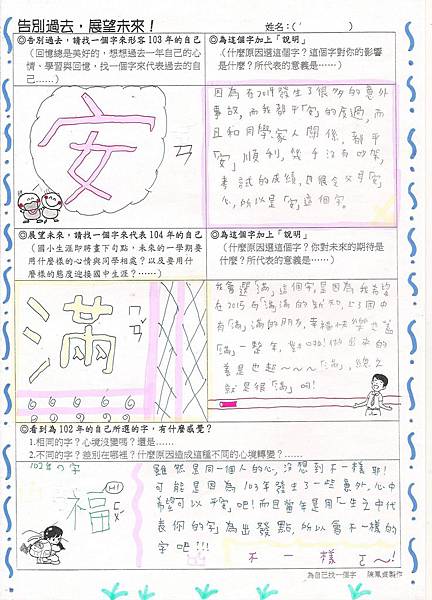 告別過去，展望未來！
姓名：( )
◎告別過去，請找一個字來形容 103 年的自己
（回憶總是美好的，想想過去一年自己的心
情、學習與回憶，找一個字來代表過去的自
己……）
◎為這個字加上「說明」
（什麼原因選這個字？這個字對你的影響
是什麼？所代表的意義是……）
安
ㄢ
因為在2014發生了很多的意外
事故，而我都平「安」的度過，而
且和同學、家人關係，都平
「安」順利，幾乎沒有吵架，
考試的成績，也很令父母「安」
心，所以是「安」這個字。
◎展望未來，請找一個字來代表 104 年的自己
（國小生涯即將畫下句點，未來的一學期要
用什麼樣的心情與同學相處？以及要用什
麼樣的態度迎接國中生涯？……）
◎為這個字加上「說明」
（什麼原因選這個字？你對未來的期待是
什麼？所代表的意義是……）
滿
ㄇㄢˇ
我會選「滿」這個字是因為我希望
在2015有「滿」滿的知識，上了國中
有「滿」滿的朋友，幸福快樂也高
「滿」一整年，
也超～～～「滿」，總之
就是很「滿」啊！
◎看到為 102 年的自己所選的字，有什麼感覺？
1.相同的字？心境沒變嗎？還是……
2.不同的字？差別在哪裡？什麼原因造成這種不同的心境轉變？……
102年の字
福
ㄈㄨˊ
HI!
雖然是同一個人的心，沒想到不一樣耶！
可能是因為103年發生了一些意外，心中
希望可以平安吧！而且當年是用「一生之中代
表你的字」為出發點，所以會不一樣的
字吧!!!
不一樣ㄛ～！
為自己找一個字 陳鳳貞製作